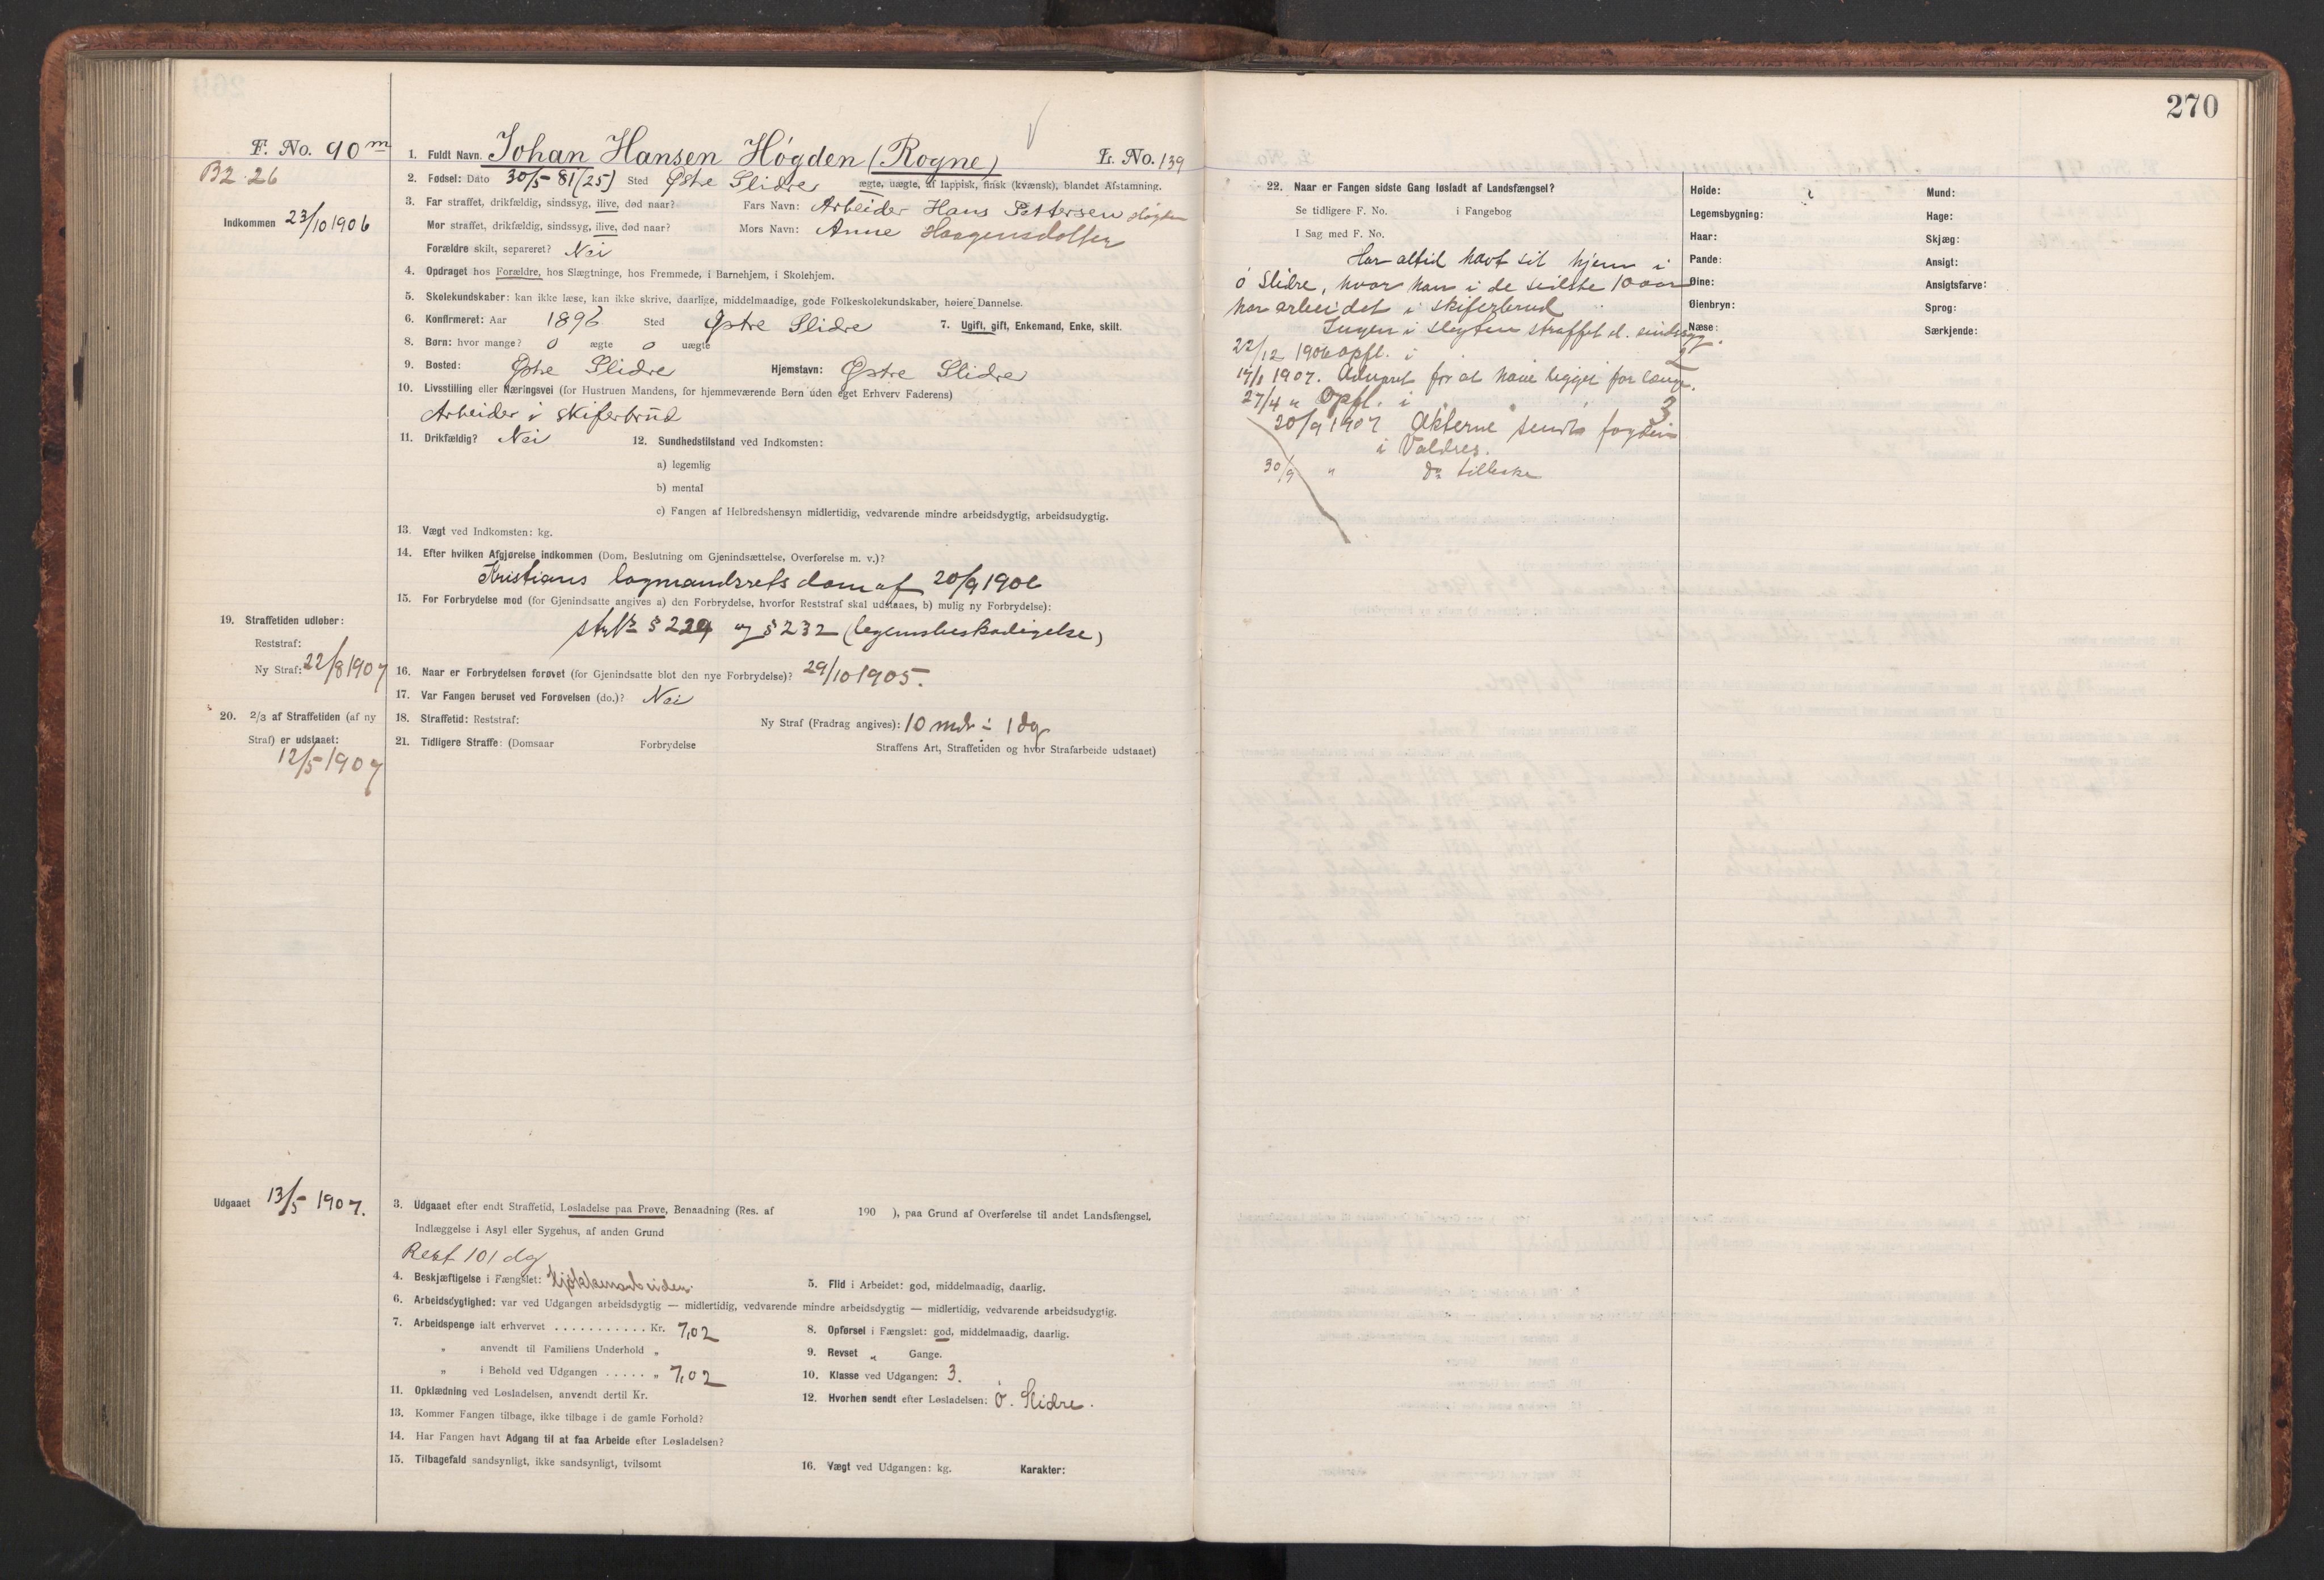 270
F. No. 90 m
B2 26
1. Fuldt Navn. Johan Hansen Høgden (Rogne) L. No. 139
2. Fødsel: Dato 30/5 81 (25) Sted Østre Slidre ægte, uægte, af lappisk, finsk (kvænsk), blandet Afstamning.
Indkommen 23/10 1906
3. Far straffet, drikfældig, sindssyg, ilive, død naar? Fars Navn: Arbeider Hans Pettersen Høgden
Mor straffet, drikfældig, sindssyg, ilive, død naar? Mors Navn: Anne Haagensdatter
Forældre skilt, separeret? Nei
4. Opdraget hos Forældre, hos Slægtninge, hos Fremmede, i Barnehjem, i Skolehjem.
5. Skolekundskaber: kan ikke læse, kan ikke skrive, daarlige, middelmaadige, gode Folkeskolekundskaber, høiere Dannelse.
6. Konfirmeret: Aar 1896 Sted Østre Slidre 7. Ugift, gift, Enkemand, Enke, skilt.
8. Børn: hvor mange? 0 ægte 0 uægte
9. Bosted: Østre Slidre Hjemstavn: Østre Slidre
10. Livsstilling eller Næringsvei (for Hustruen Mandens, for hjemmeværende Børn uden eget Erhverv Faderens)
Arbeider i skiferbrud
11. Drikfældig? Nei 12. Sundhedstilstand ved Indkomsten:
a) legemlig
b) mental
c) Fangen af Helbredshensyn midlertidig, vedvarende mindre arbeidsdygtig, arbeidsudygtig.
13. Vægt ved Indkomsten: kg.
14. Efter hvilken Afgjørelse indkommen (Dom, Beslutning om Gjenindsættelse, Overførelse m. v.)?
Kristians lagmandsrets dom af 20/9 1906
15. For Forbrydelse mod (for Gjenindsatte angives a) den Forbrydelse, hvorfor Reststraf skal udstaaes, b) mulig ny Forbrydelse):
strl's § 229 og § 232 (legemsbeskadigelse)
19. Straffetiden udløber:
Reststraf:
Ny Straf: 22/8 1907
16. Naar er Forbrydelsen forøvet (for Gjenindsatte blot den nye Forbrydelse)? 29/10 1905.
17. Var Fangen beruset ved Forøvelsen (do.)? Nei
20. 2/3 af Straffetiden (af ny
Straf) er udstaaet:
12/5 1907
18. Straffetid: Reststraf: Ny Straf (Fradrag angives): 10 mdr ÷ 1 dg
21. Tidligere Straffe: (Domsaar Forbrydelse Straffens Art, Straffetiden og hvor Strafarbeide udstaaet)
Udgaaet 13/5 1907.
3. Udgaaet efter endt Straffetid, Løsladelse paa Prøve, Benaadning (Res. af 190 ), paa Grund af Overførelse til andet Landsfængsel,
Indlæggelse i Asyl eller Sygehus, af anden Grund
Rest 101 dg
4. Beskjæftigelse i Fængslet: Kjøkkenarbeider. 5. Flid i Arbeidet: god, middelmaadig, daarlig.
6. Arbeidsdygtighed: var ved Udgangen arbeidsdygtig — midlertidig, vedvarende mindre arbeidsdygtig — midlertidig, vedvarende arbeidsudygtig.
7. Arbeidspenge ialt erhvervet ........... Kr. 7,02 8. Opførsel i Fængslet: god, middelmaadig, daarlig.
" anvendt til Familiens Underhold " 9. Revset " Gange.
" i Behold ved Udgangen ..... " 7,02 10. Klasse ved Udgangen: 3.
11. Opklædning ved Løsladelsen, anvendt dertil Kr. 12. Hvorhen sendt efter Løsladelsen: Ø. Slidre.
13. Kommer Fangen tilbage, ikke tilbage i de gamle Forhold?
14. Har Fangen havt Adgang til at faa Arbeide efter Løsladelsen?
15. Tilbagefald sandsynligt, ikke sandsynligt, tvilsomt 16. Vægt ved Udgangen: kg. Karakter:
22. Naar er Fangen sidste Gang løsladt af Landsfængsel?
Se tidligere F. No. i Fangebog
I Sag med F. No.
Har altid havt sit hjem i
Ø Slidre, hvor han i de sidste 10 aar
har arbeidet i skiferbrud
Ingen i slegten straffet el. sindssyg.
22/12 1906 opfl. i 2
17/1 1907. Advaret for at have ligget for længe.
27/4 " Opfl. i " 3
20/9 1907 Akterne sendt fogden
i Valdres.
30/9 " do tilbake
Høide:
Legemsbygning:
Haar:
Pande:
Øine:
Øienbryn:
Næse:
Mund:
Hage:
Skjæg:
Ansigt:
Ansigtsfarve:
Sprog:
Særkjende: